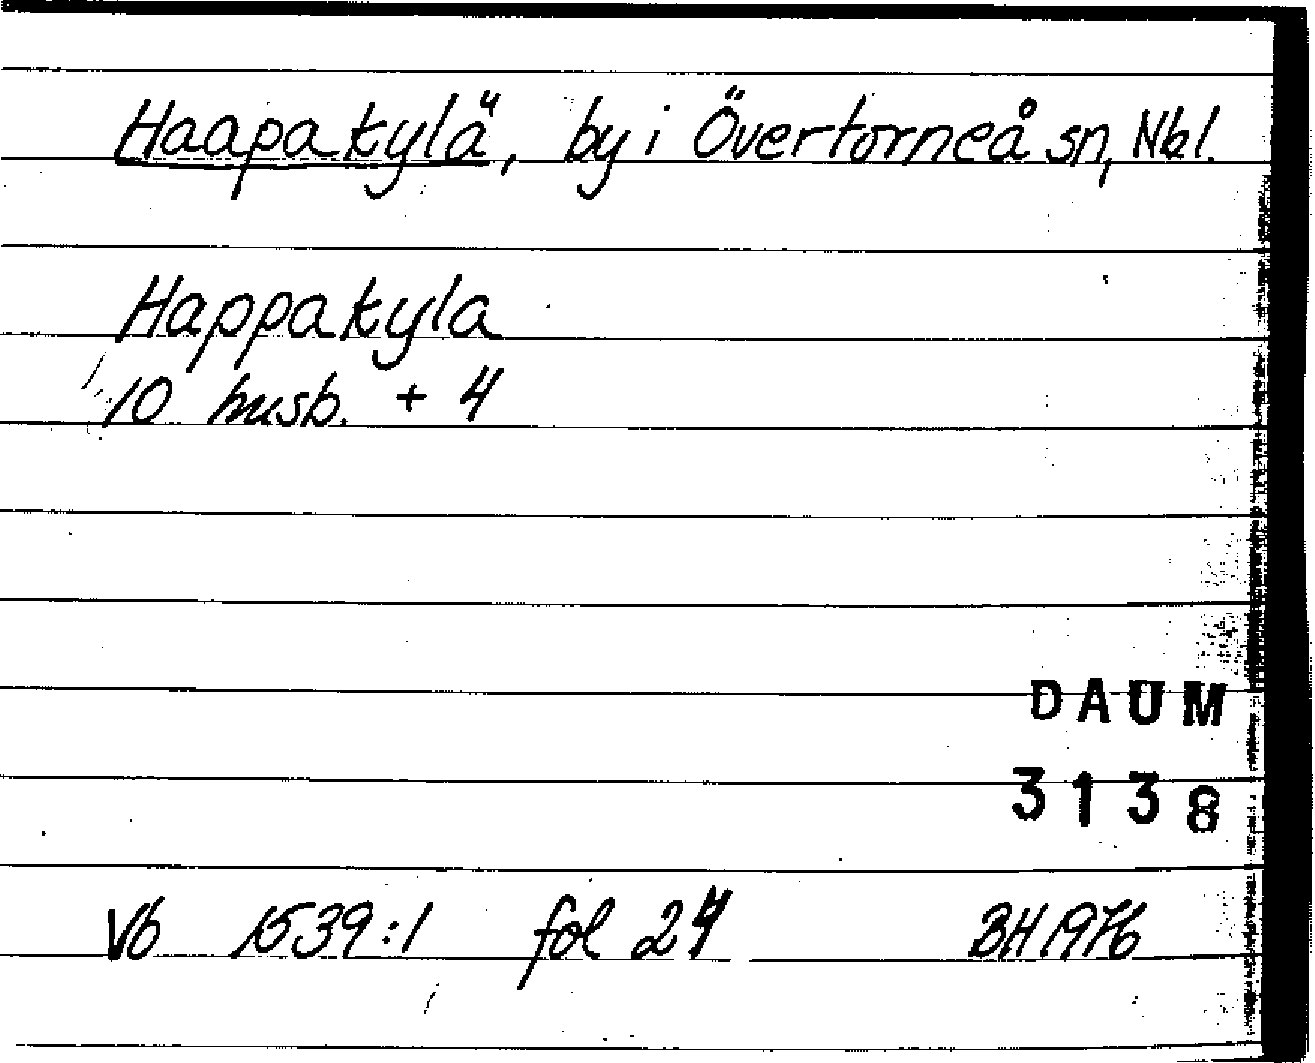 Haapakylä, by i Övertorneå sn, Nbl.
Happakyla
10 husb. + 4
DAUM
3138
Vb 1539:1 fol 24 BH 1976